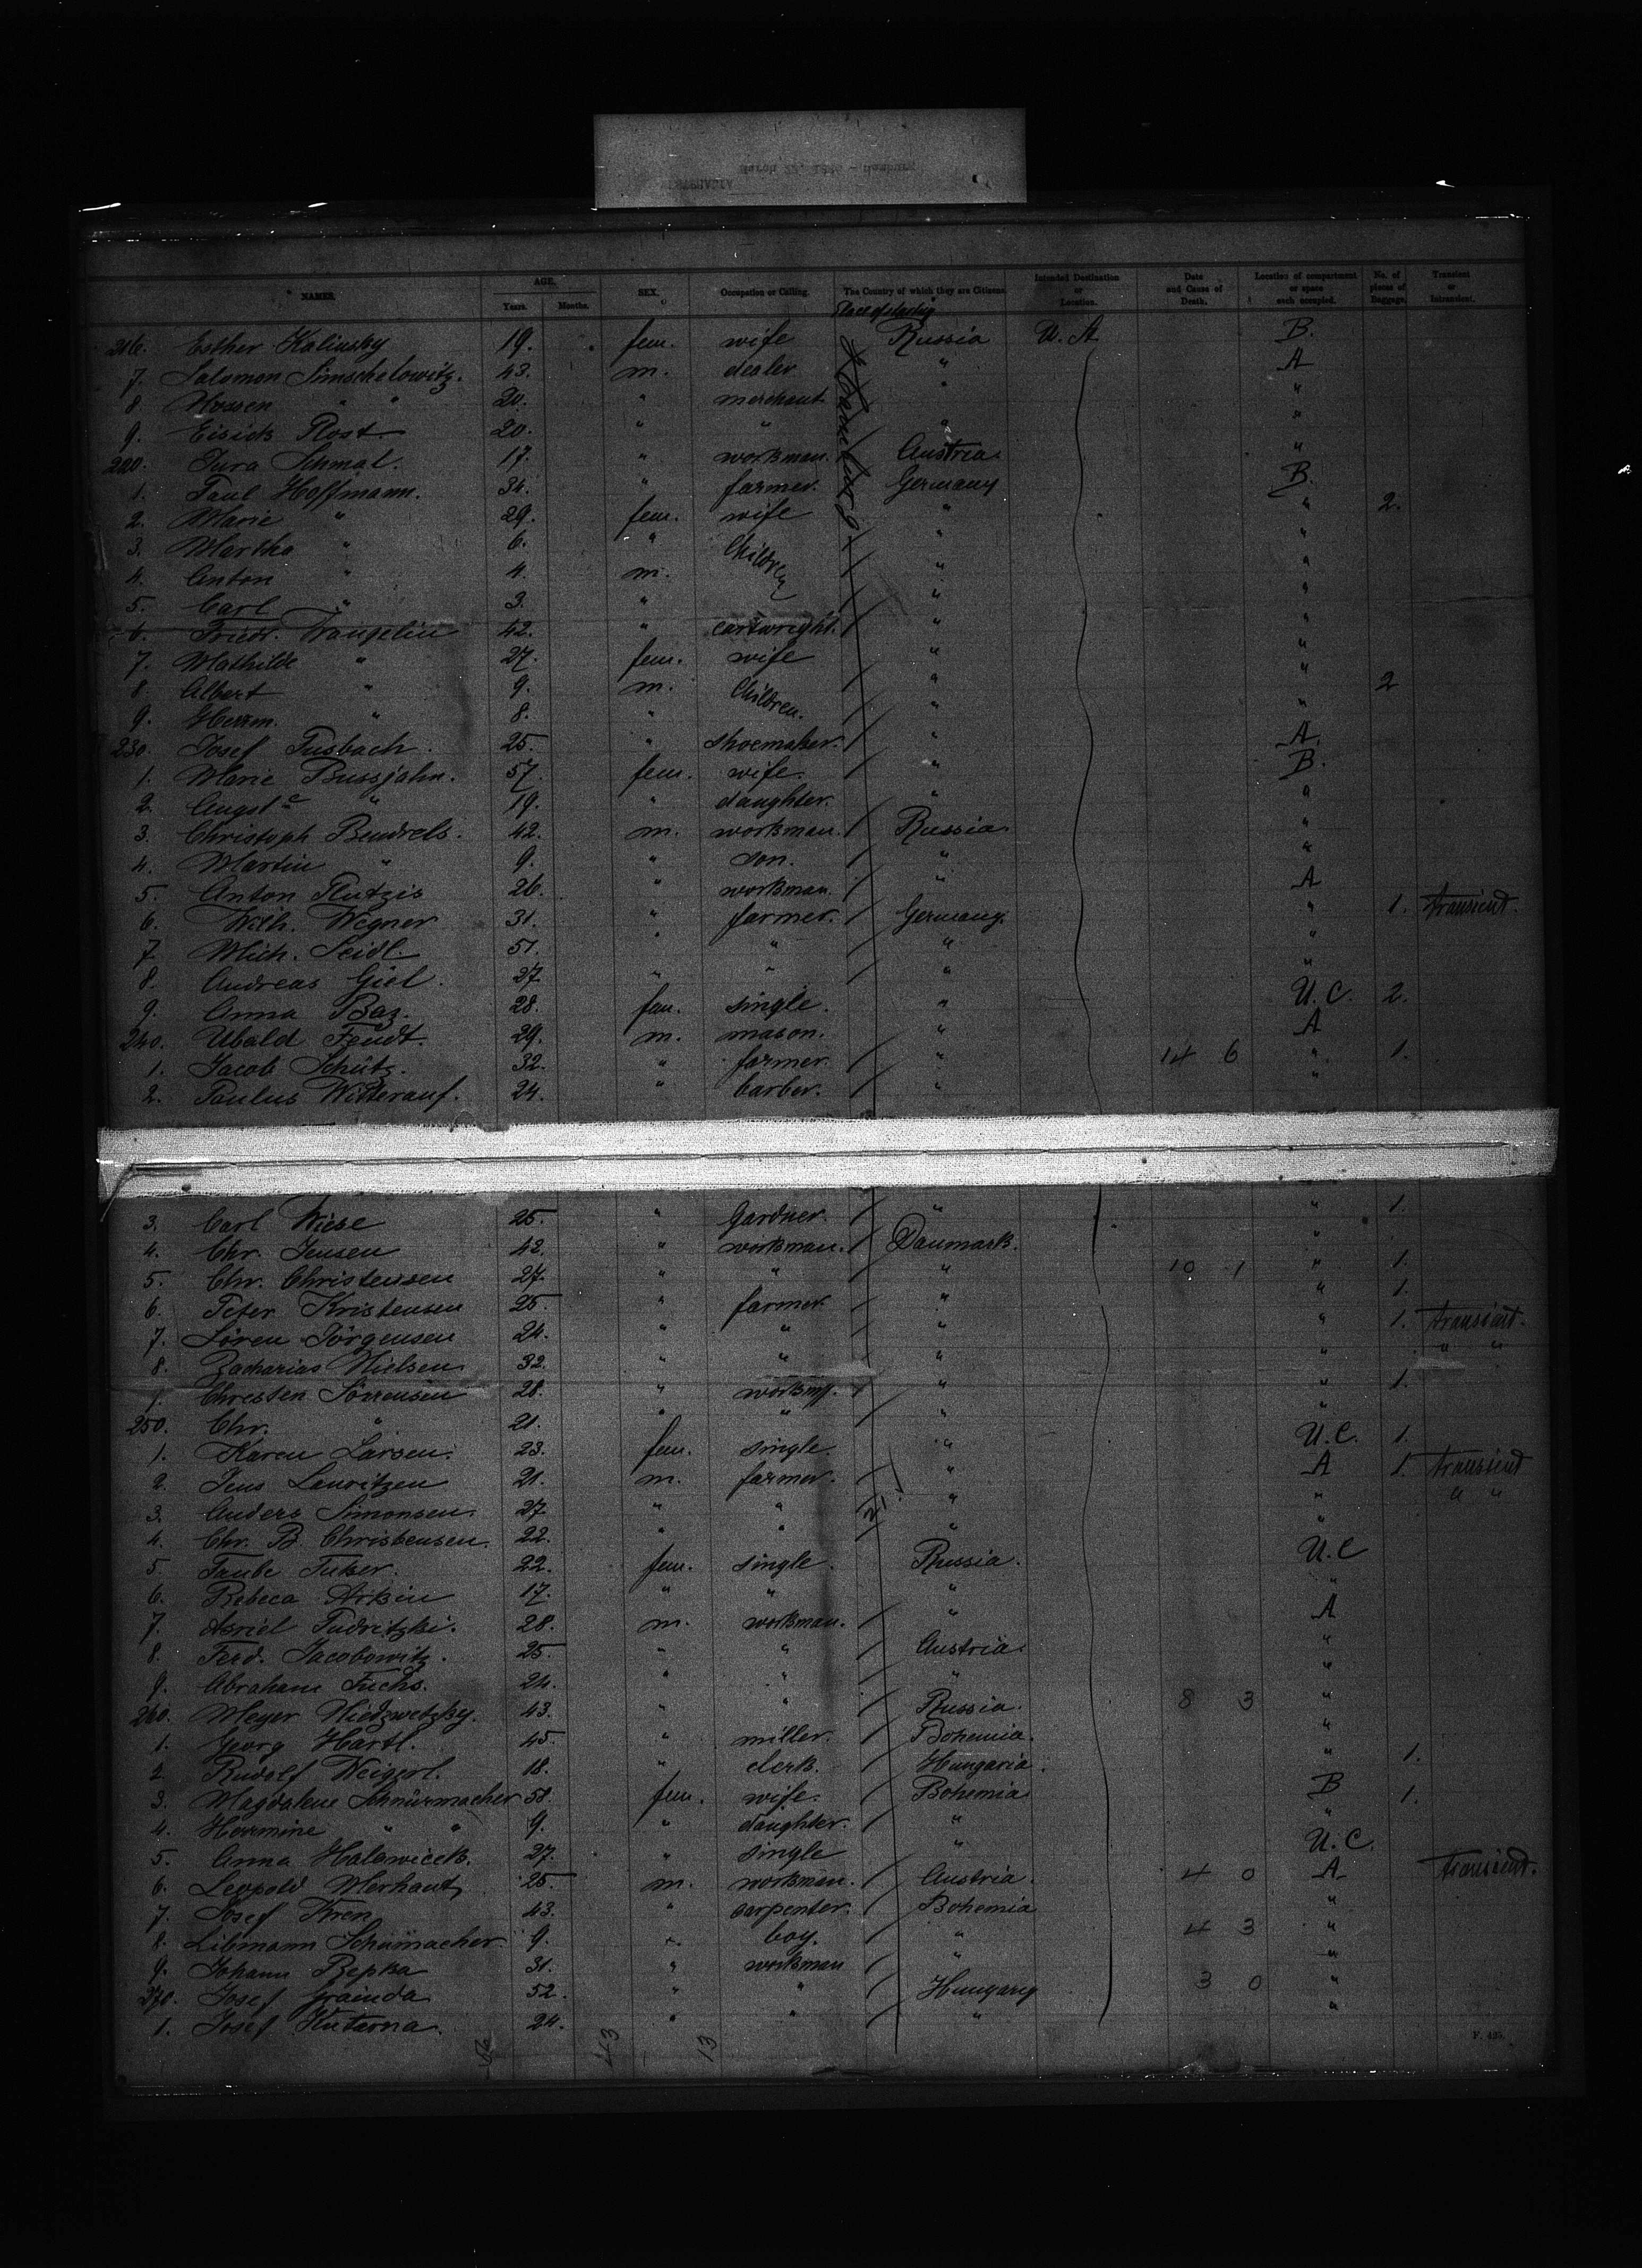 NAMES. AGE. Years. Months. SEX. Occupation or Calling. The Country of which they are Citizens. Intended Destination or Location. Date and Cause of Death. Location of compartment or space each occupied. No. of pieces of Baggage. Transient or Intransient.
Place of starting
Hamburg
216. Esther Kalinsky 19. fem. wife Russia U. A B.
7. Salomon Simschelowitz. 43. m. dealer " A
8. Mossen " " 20. " merchant " "
9. Eisick Rost. 20. " " " "
220. Jura Schmal. 17. " workman. Austria. "
1. Paul Hoffmann. 34. " farmer. Germany B.
2. Marie " 29. fem. wife " " 2.
3. Martha " 6. " Children " "
4. Anton " 4. m. " "
5. Carl " 3. " " "
6. Friedr. Wangelin 42. " cartwright. " "
7. Mathilde " 27. fem. wife " "
8. Albert " 9. m. Children. " " 2
9. Herrm. " 8. " " "
230. Josef Fusbach. 25. " shoemaker. " A.
1. Marie Bussjahn. 57. fem. wife. " B.
2. August e " 19. " daughter. " "
3. Christoph Bendrels. 42. m. workman. Russia. "
4. Martin " 9. " son. " "
5. Anton Plutzis 26. " workman. " A
6. Wilh. Wegner 31. " farmer. Germany. " 1. transient.
7. Mich. Seidl. 51. " " " "
8. Andreas Giel. 27 " " " "
9. Anna Baz. 28. fem. single. " U. C. 2.
240. Ubald Fendt. 29. m. mason. " A
1. Jacob Schütz. 32. " farmer. " 14 6 " 1.
2. Paulus Witterauf. 24. " barber. " "
3. Carl Wiese 25. " Gardner. " " 1.
4. Chr. Jensen 42. " workman. Danmark. "
5. Chr. Christensen 27. " " " 10 1 " 1.
6. Peter Kristensen 25. " farmer " " 1.
7. Sören Jörgensen 24. " " " " 1. transient.
8. Zacharias Nielsen 32. " " " " " "
9. Christen Sörensen 28. " workm. " " 1.
250. Chr. " 21. " " " "
1. Karen Larsen. 23. fem. single. " U. C. 1.
2. Jens Lauritzen 21. m. farmer. " A 1. transient
3. Anders Simonsen. 27 " " " " " "
4. Chr. B. Christensen. 22. " " " "
5 Taube Tuker. 22. fem. single. Russia. U. C
6. Rebeca Arkin 17. " " " "
7. Asriel Tudritzki. 28. m. workman. " A
8. Ferd. Jacobowitz. 25. " " Austria. "
9. Abraham Fuchs. 24. " " " "
260. Meyer Niedzwetzky. 43. " " Russia. 8 3 "
1. Georg Hartl. 45. " miller. Bohemia. "
2. Rudolf Weigerl. 18. " clerk. Hungaria. " 1.
3. Magdalene Schnürmacher 58. fem. wife. Bohemia B 1.
4. Hermine " " 9. " daughter. " "
5. Anna Halawicek. 27. " single " U. C.
6. Leopold Merhaut 25. m. workman. Austria. 4 0 A transient.
7. Josef Kren 43. " carpenter. Bohemia "
8. Libmann Schümacher. 9. " boy. " 4 3 "
9. Johann Repka 31. " workman " "
270. Josef Grainda 52. " " Hungary 3 0 "
1. Josef Kutarna. 24. " " " "
43 13
F. 425.